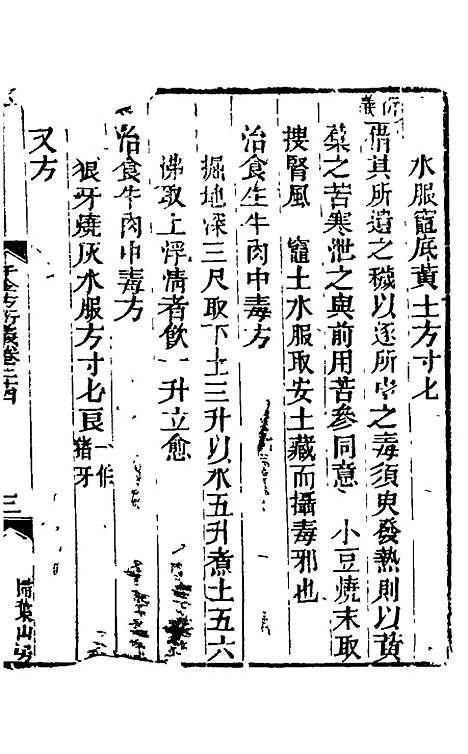 水服竈底黃土方寸匕
衍義
借其所遺之穢以逐所中之毒須臾發熱則以黃
蘗之苦寒泄之與前用苦參同意　小豆燒末取
搜腎風　竈土水服取安土藏而攝毒邪也
治食生牛肉中毒方
掘地深三尺取下土三升以水五升煮土五六
沸取上浮清者飲一升立愈
治食牛肉中毒方
狼牙燒灰水服方寸匕良一作豬牙
又方
千金方衍義卷二十四
三
掃葉山房